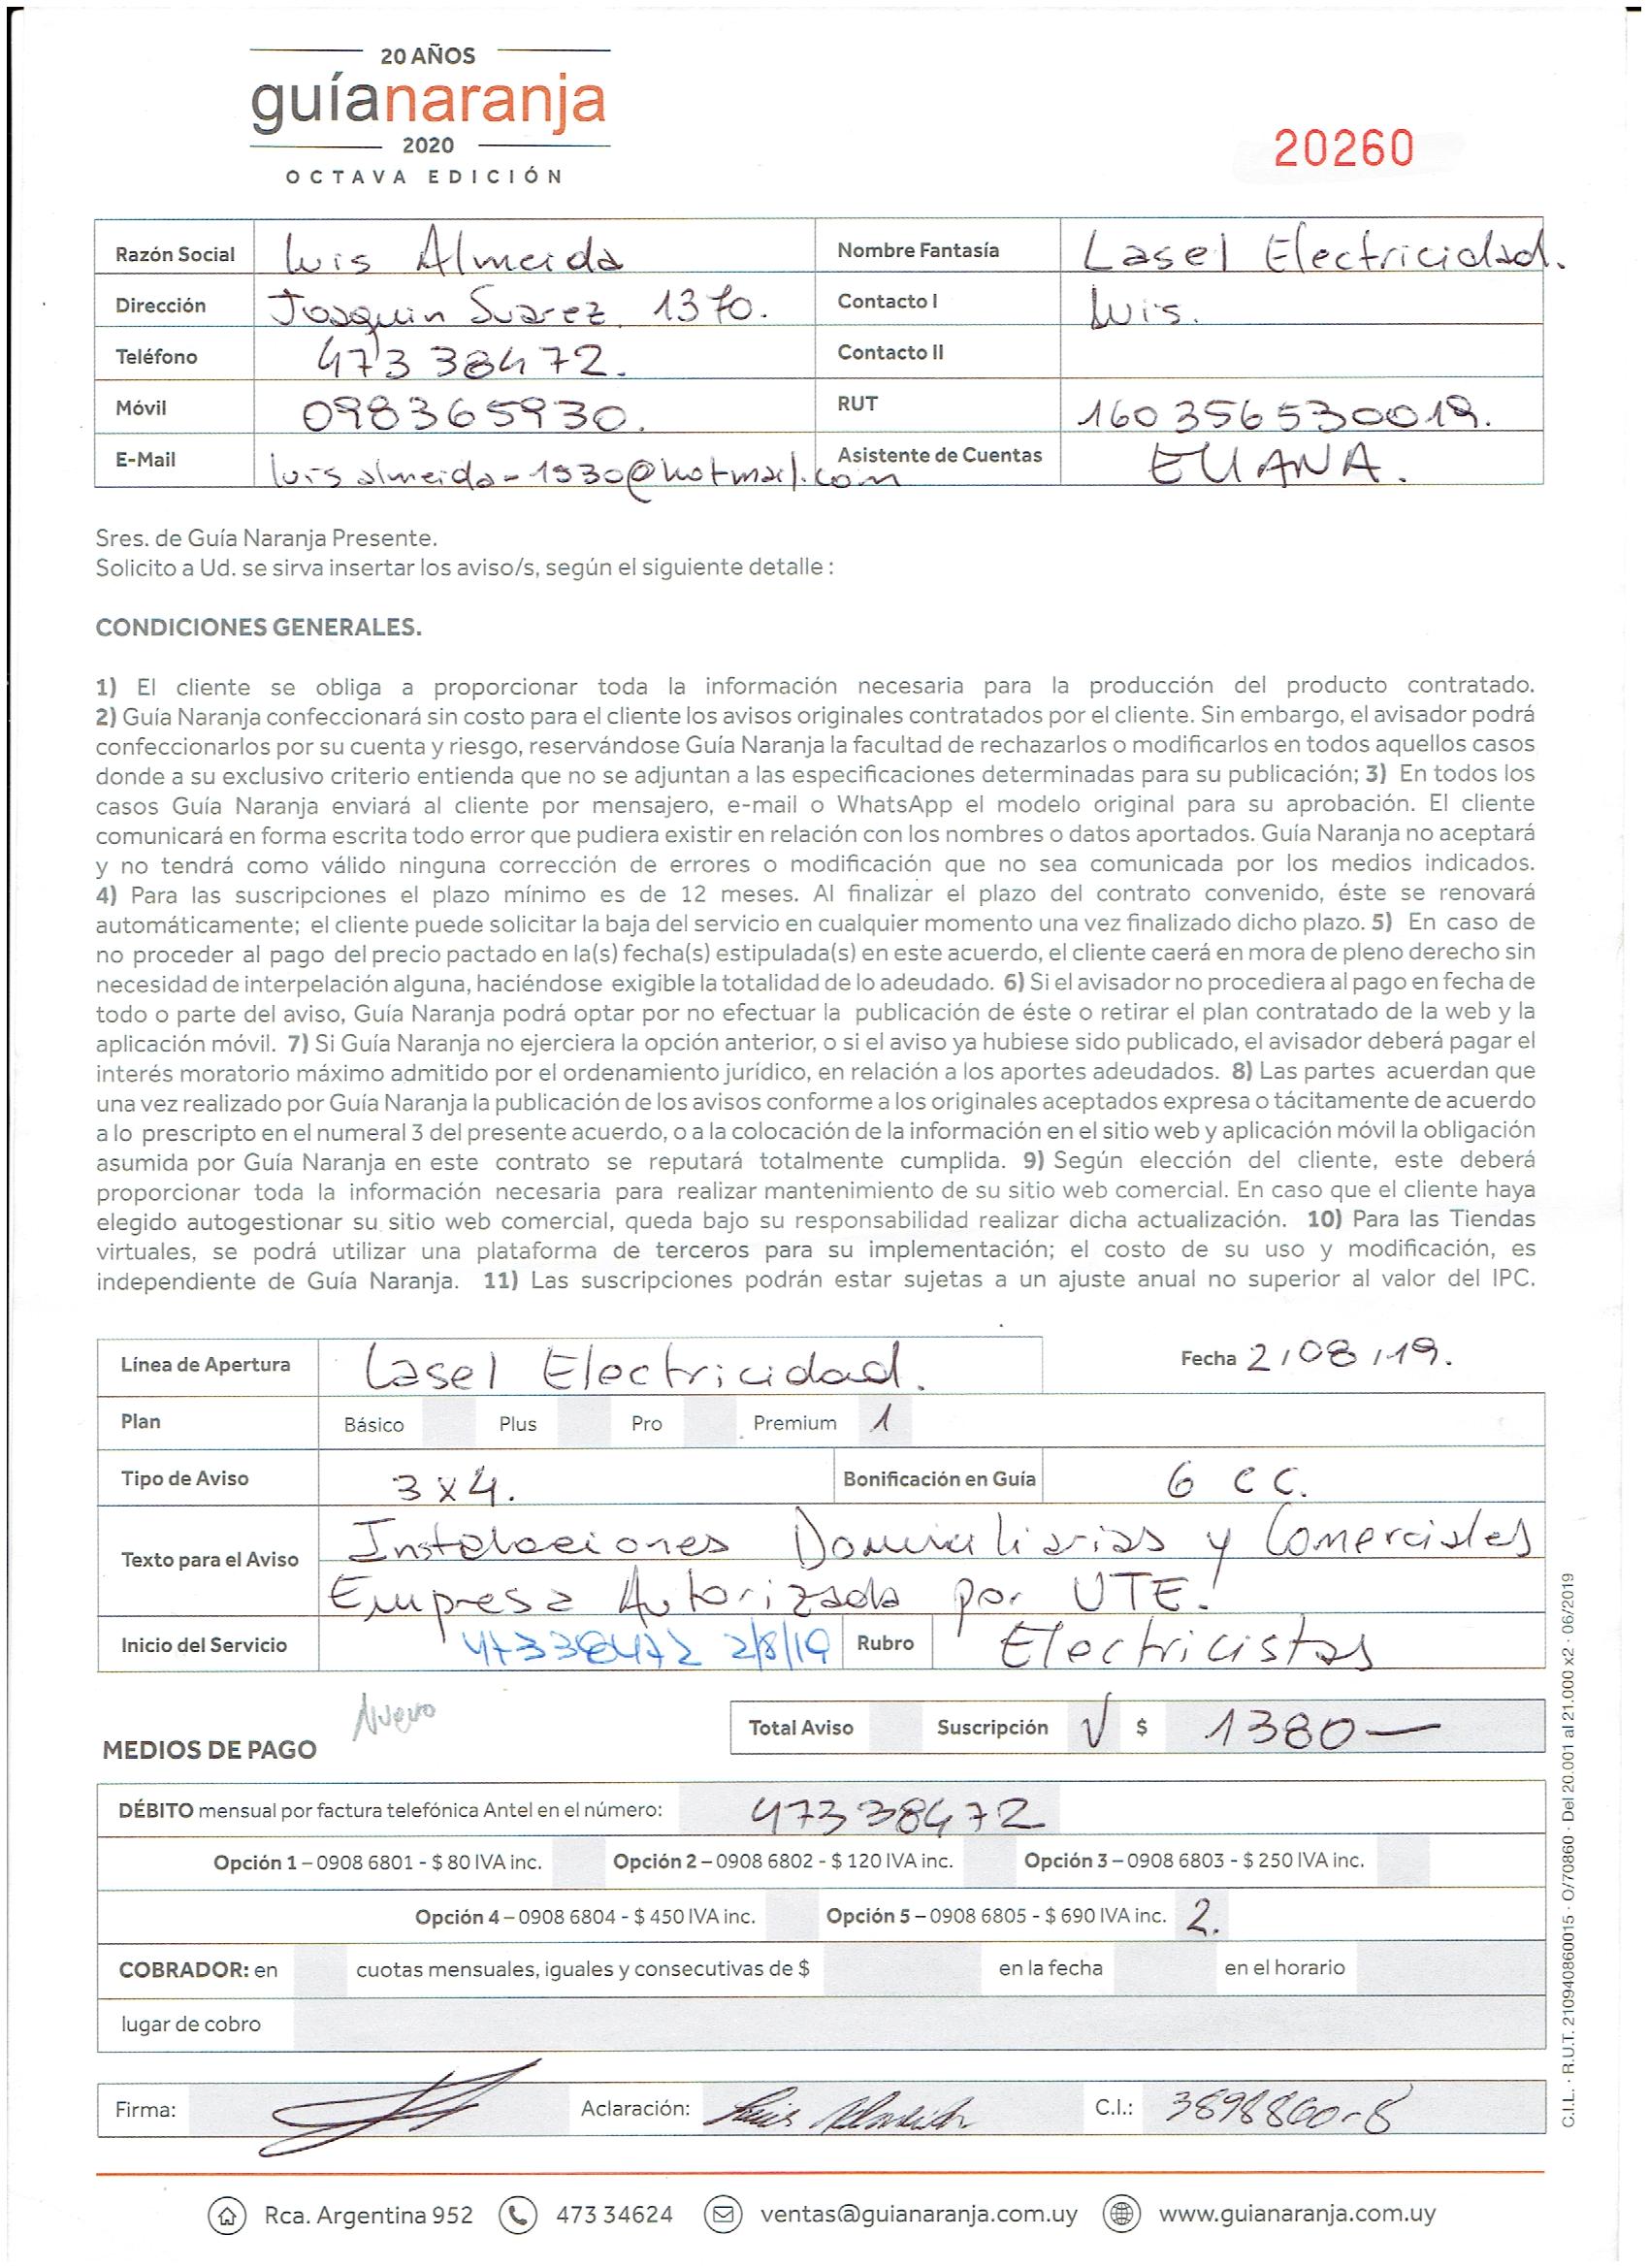 20 AÑOS
guíanaranja
2020
OCTAVA EDICIÓN
20260
Razón Social Luis Almeida Nombre Fantasía Lasel Electricidad.
Dirección Joaquin Suarez 1370. Contacto I Luis.
Teléfono 473 38472. Contacto II
Móvil 098365930. RUT 160356530019.
E-Mail luisalmeida-1930@hotmail.com Asistente de Cuentas ELIANA.
Sres. de Guía Naranja Presente.
Solicito a Ud. se sirva insertar los aviso/s, según el siguiente detalle :
CONDICIONES GENERALES.
1) El cliente se obliga a proporcionar toda la información necesaria para la producción del producto contratado.
2) Guía Naranja confeccionará sin costo para el cliente los avisos originales contratados por el cliente. Sin embargo, el avisador podrá
confeccionarlos por su cuenta y riesgo, reservándose Guía Naranja la facultad de rechazarlos o modificarlos en todos aquellos casos
donde a su exclusivo criterio entienda que no se adjuntan a las especificaciones determinadas para su publicación; 3) En todos los
casos Guía Naranja enviará al cliente por mensajero, e-mail o WhatsApp el modelo original para su aprobación. El cliente
comunicará en forma escrita todo error que pudiera existir en relación con los nombres o datos aportados. Guía Naranja no aceptará
y no tendrá como válido ninguna corrección de errores o modificación que no sea comunicada por los medios indicados.
4) Para las suscripciones el plazo mínimo es de 12 meses. Al finalizar el plazo del contrato convenido, éste se renovará
automáticamente; el cliente puede solicitar la baja del servicio en cualquier momento una vez finalizado dicho plazo. 5) En caso de
no proceder al pago del precio pactado en la(s) fecha(s) estipulada(s) en este acuerdo, el cliente caerá en mora de pleno derecho sin
necesidad de interpelación alguna, haciéndose exigible la totalidad de lo adeudado. 6) Si el avisador no procediera al pago en fecha de
todo o parte del aviso, Guía Naranja podrá optar por no efectuar la publicación de éste o retirar el plan contratado de la web y la
aplicación móvil. 7) Si Guía Naranja no ejerciera la opción anterior, o si el aviso ya hubiese sido publicado, el avisador deberá pagar el
interés moratorio máximo admitido por el ordenamiento jurídico, en relación a los aportes adeudados. 8) Las partes acuerdan que
una vez realizado por Guía Naranja la publicación de los avisos conforme a los originales aceptados expresa o tácitamente de acuerdo
a lo prescripto en el numeral 3 del presente acuerdo, o a la colocación de la información en el sitio web y aplicación móvil la obligación
asumida por Guía Naranja en este contrato se reputará totalmente cumplida. 9) Según elección del cliente, este deberá
proporcionar toda la información necesaria para realizar mantenimiento de su sitio web comercial. En caso que el cliente haya
elegido autogestionar su sitio web comercial, queda bajo su responsabilidad realizar dicha actualización. 10) Para las Tiendas
virtuales, se podrá utilizar una plataforma de terceros para su implementación; el costo de su uso y modificación, es
independiente de Guía Naranja. 11) Las suscripciones podrán estar sujetas a un ajuste anual no superior al valor del IPC.
Línea de Apertura Lasel Electricidad. Fecha 2/08/19.
Plan Básico Plus Pro Premium 1
Tipo de Aviso 3x4. Bonificación en Guía 6 CC.
Texto para el Aviso Instalaciones Domiciliarias y Comerciales
Empresa Autorizada por UTE.
Inicio del Servicio 47338472 2/8/19 Rubro Electricistas
Nuevo
Total Aviso Suscripción √ $ 1380—
MEDIOS DE PAGO
DÉBITO mensual por factura telefónica Antel en el número: 47338472
Opción 1 – 0908 6801 - $ 80 IVA inc. Opción 2 – 0908 6802 - $ 120 IVA inc. Opción 3 – 0908 6803 - $ 250 IVA inc.
Opción 4 – 0908 6804 - $ 450 IVA inc. Opción 5 – 0908 6805 - $ 690 IVA inc. 2.
COBRADOR: en cuotas mensuales, iguales y consecutivas de $ en la fecha en el horario
lugar de cobro
Firma: Aclaración: Luis Almeida C.I.: 3898860-8
C.I.L. · R.U.T. 210940860015 · O/70860 · Del 20.001 al 21.000 x2 · 06/2019
Rca. Argentina 952 473 34624 ventas@guianaranja.com.uy www.guianaranja.com.uy